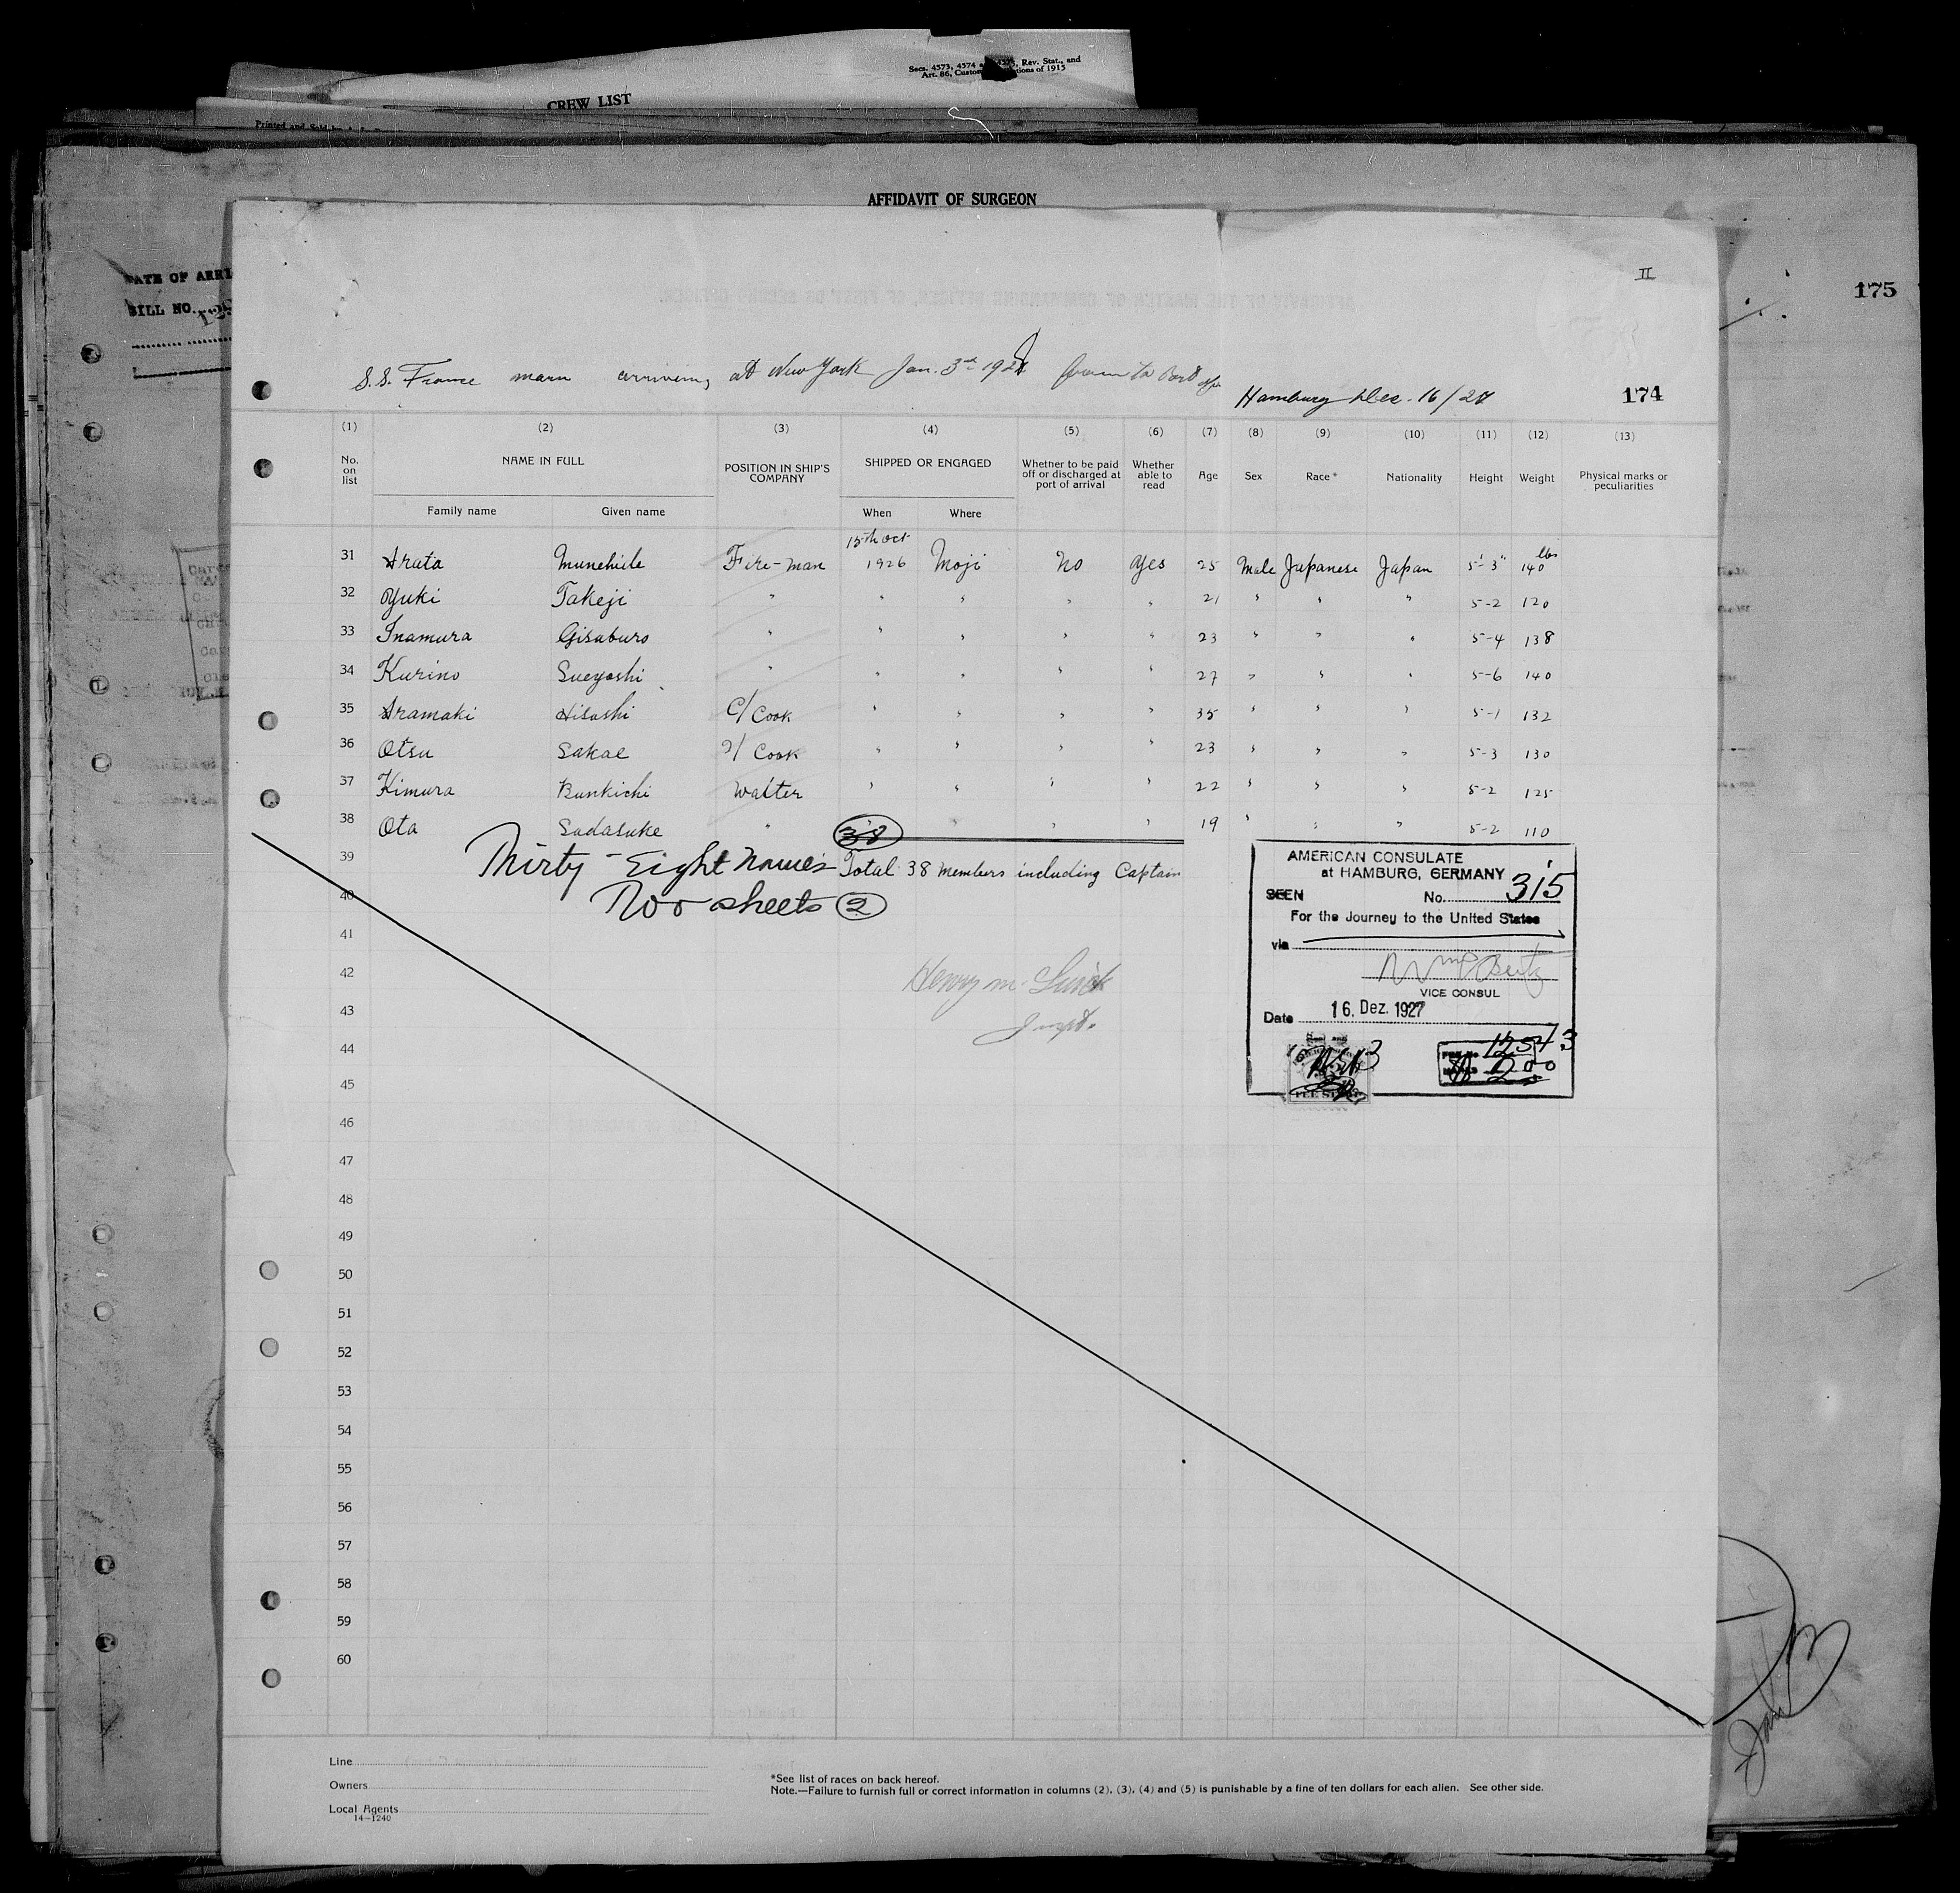 Secs. 4573, 4574 a 4575, Rev. Stat., and
Art. 86, Custom tions of 1915
CREW LIST
Printed and Sold by
AFFIDAVIT OF SURGEON
DATE OF ARRI
BILL NO.
175
II
S.S. France maru arriving at New York Jan. 3rd 1928 from the Port of
Hamburg Dec. 16/27
174
(1) (2) (3) (4) (5) (6) (7) (8) (9) (10) (11) (12) (13)
No. on list NAME IN FULL POSITION IN SHIP'S COMPANY SHIPPED OR ENGAGED Whether to be paid off or discharged at port of arrival Whether able to read Age Sex Race* Nationality Height Weight Physical marks or peculiarities
Family name Given name When Where
15th Oct
31 Arata Munehide Fire-man 1926 Moji No Yes 25 Male Japanese Japan 5'-3" 140 lbs
32 Yuki Takeji " " " " " 21 " " " 5-2 120
33 Inamura Gisaburo " " " " " 23 " " " 5-4 138
34 Kurino Sueyoshi " " " " " 27 " " " 5-6 140
35 Aramaki Hisashi C/ Cook " " " " 35 " " " 5-1 132
36 Otsu Sakae 2/ Cook " " " " 23 " " " 5-3 130
37 Kimura Bunkichi Waiter " " " " 22 " " " 5-2 125
38 Ota Sadasuke " " " " 19 " " " 5-2 110
38
39 Thirty-Eight Names Total 38 members including Captain
40 Two sheets 2
41
42 Henry M.
43 Inspt.
44
45
46
47
48
49
50
51
52
53
54
55
56
57
58
59
60
AMERICAN CONSULATE
at HAMBURG, GERMANY
SEEN No. 315
For the Journey to the United States
via
VICE CONSUL
Date 16. Dez. 1927
Jan 3
Line
Owners
Local Agents
14—1240
*See list of races on back hereof.
Note.—Failure to furnish full or correct information in columns (2), (3), (4) and (5) is punishable by a fine of ten dollars for each alien. See other side.